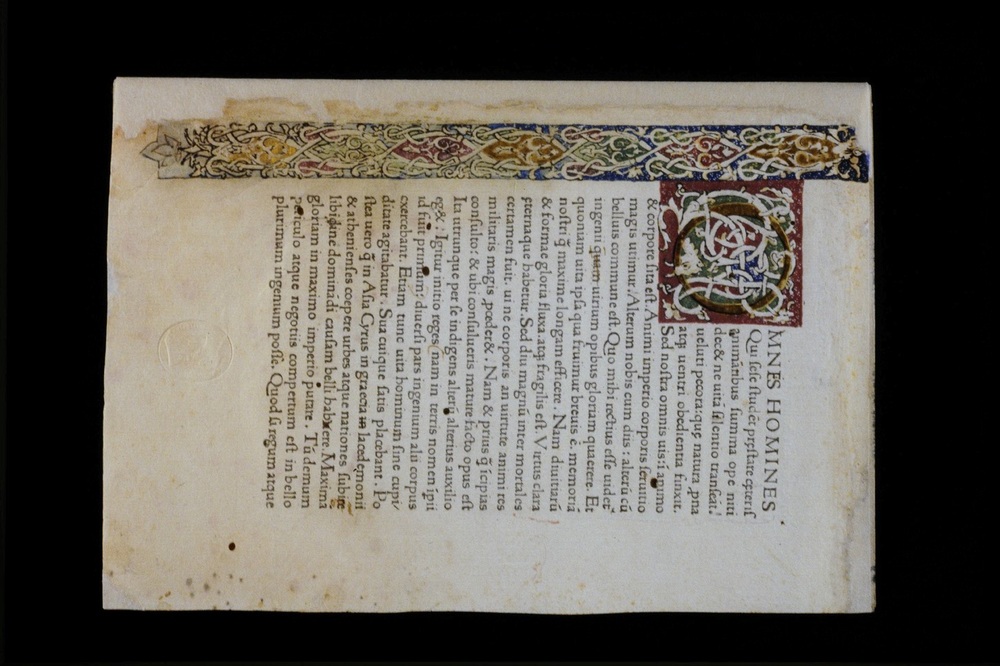 OMNES HOMINES
Qui sese student pręstare cęteris
animātibus summa ope niti
dec& ne uitā silentio transeāt!
ueluti pecora: quę natura ,pna
atq; uentri obedientia finxit.
Sed nostra omnis uis: ī animo
& corpore sita est. Animi imperio corporis seruitio
magis utimur. Alterum nobis cum diis: alterū cū
belluis commune est. Quo mihi rectius esse uidet
ingenii quam uirium opibus gloriam quaerere. Et
quoniam uita ipsa qua fruimur breuis ē. memoriā
nostri q̄ maxime longam efficere. Nam diuitiarū
& formae gloria fluxa. atq; fragilis est Virtus clara
ęternaque habetur. Sed diu magnū inter mortales
certamen fuit. ui ne corporis an uirtute animi res
militaris magis ,pceder&: Nam & prius q̄ īcipias
consulto: & ubi consulueris mature facto opus est
Ita utrunque per se indigens alterū alterius auxilio
eg&: Igitur initio reges nam in terris nomen īpii
id fuit primum: diuersi pars ingenium alii corpus
exercebant. Etiam tunc uita hominum sine cupi/
ditate agitabatur. Sua cuique satis placebant. Po
stea uero q̄ in Asia Cyrus in graecia lacedęmonii
& athenienses coepere urbes atque nationes subige
libidine dominādi causam belli habuere. Maximā
gloriam in maximo imperio putare. Tū demum
periculo atque negotiis compertum est in bello
plurimum ingenium posse. Quod si regum atque